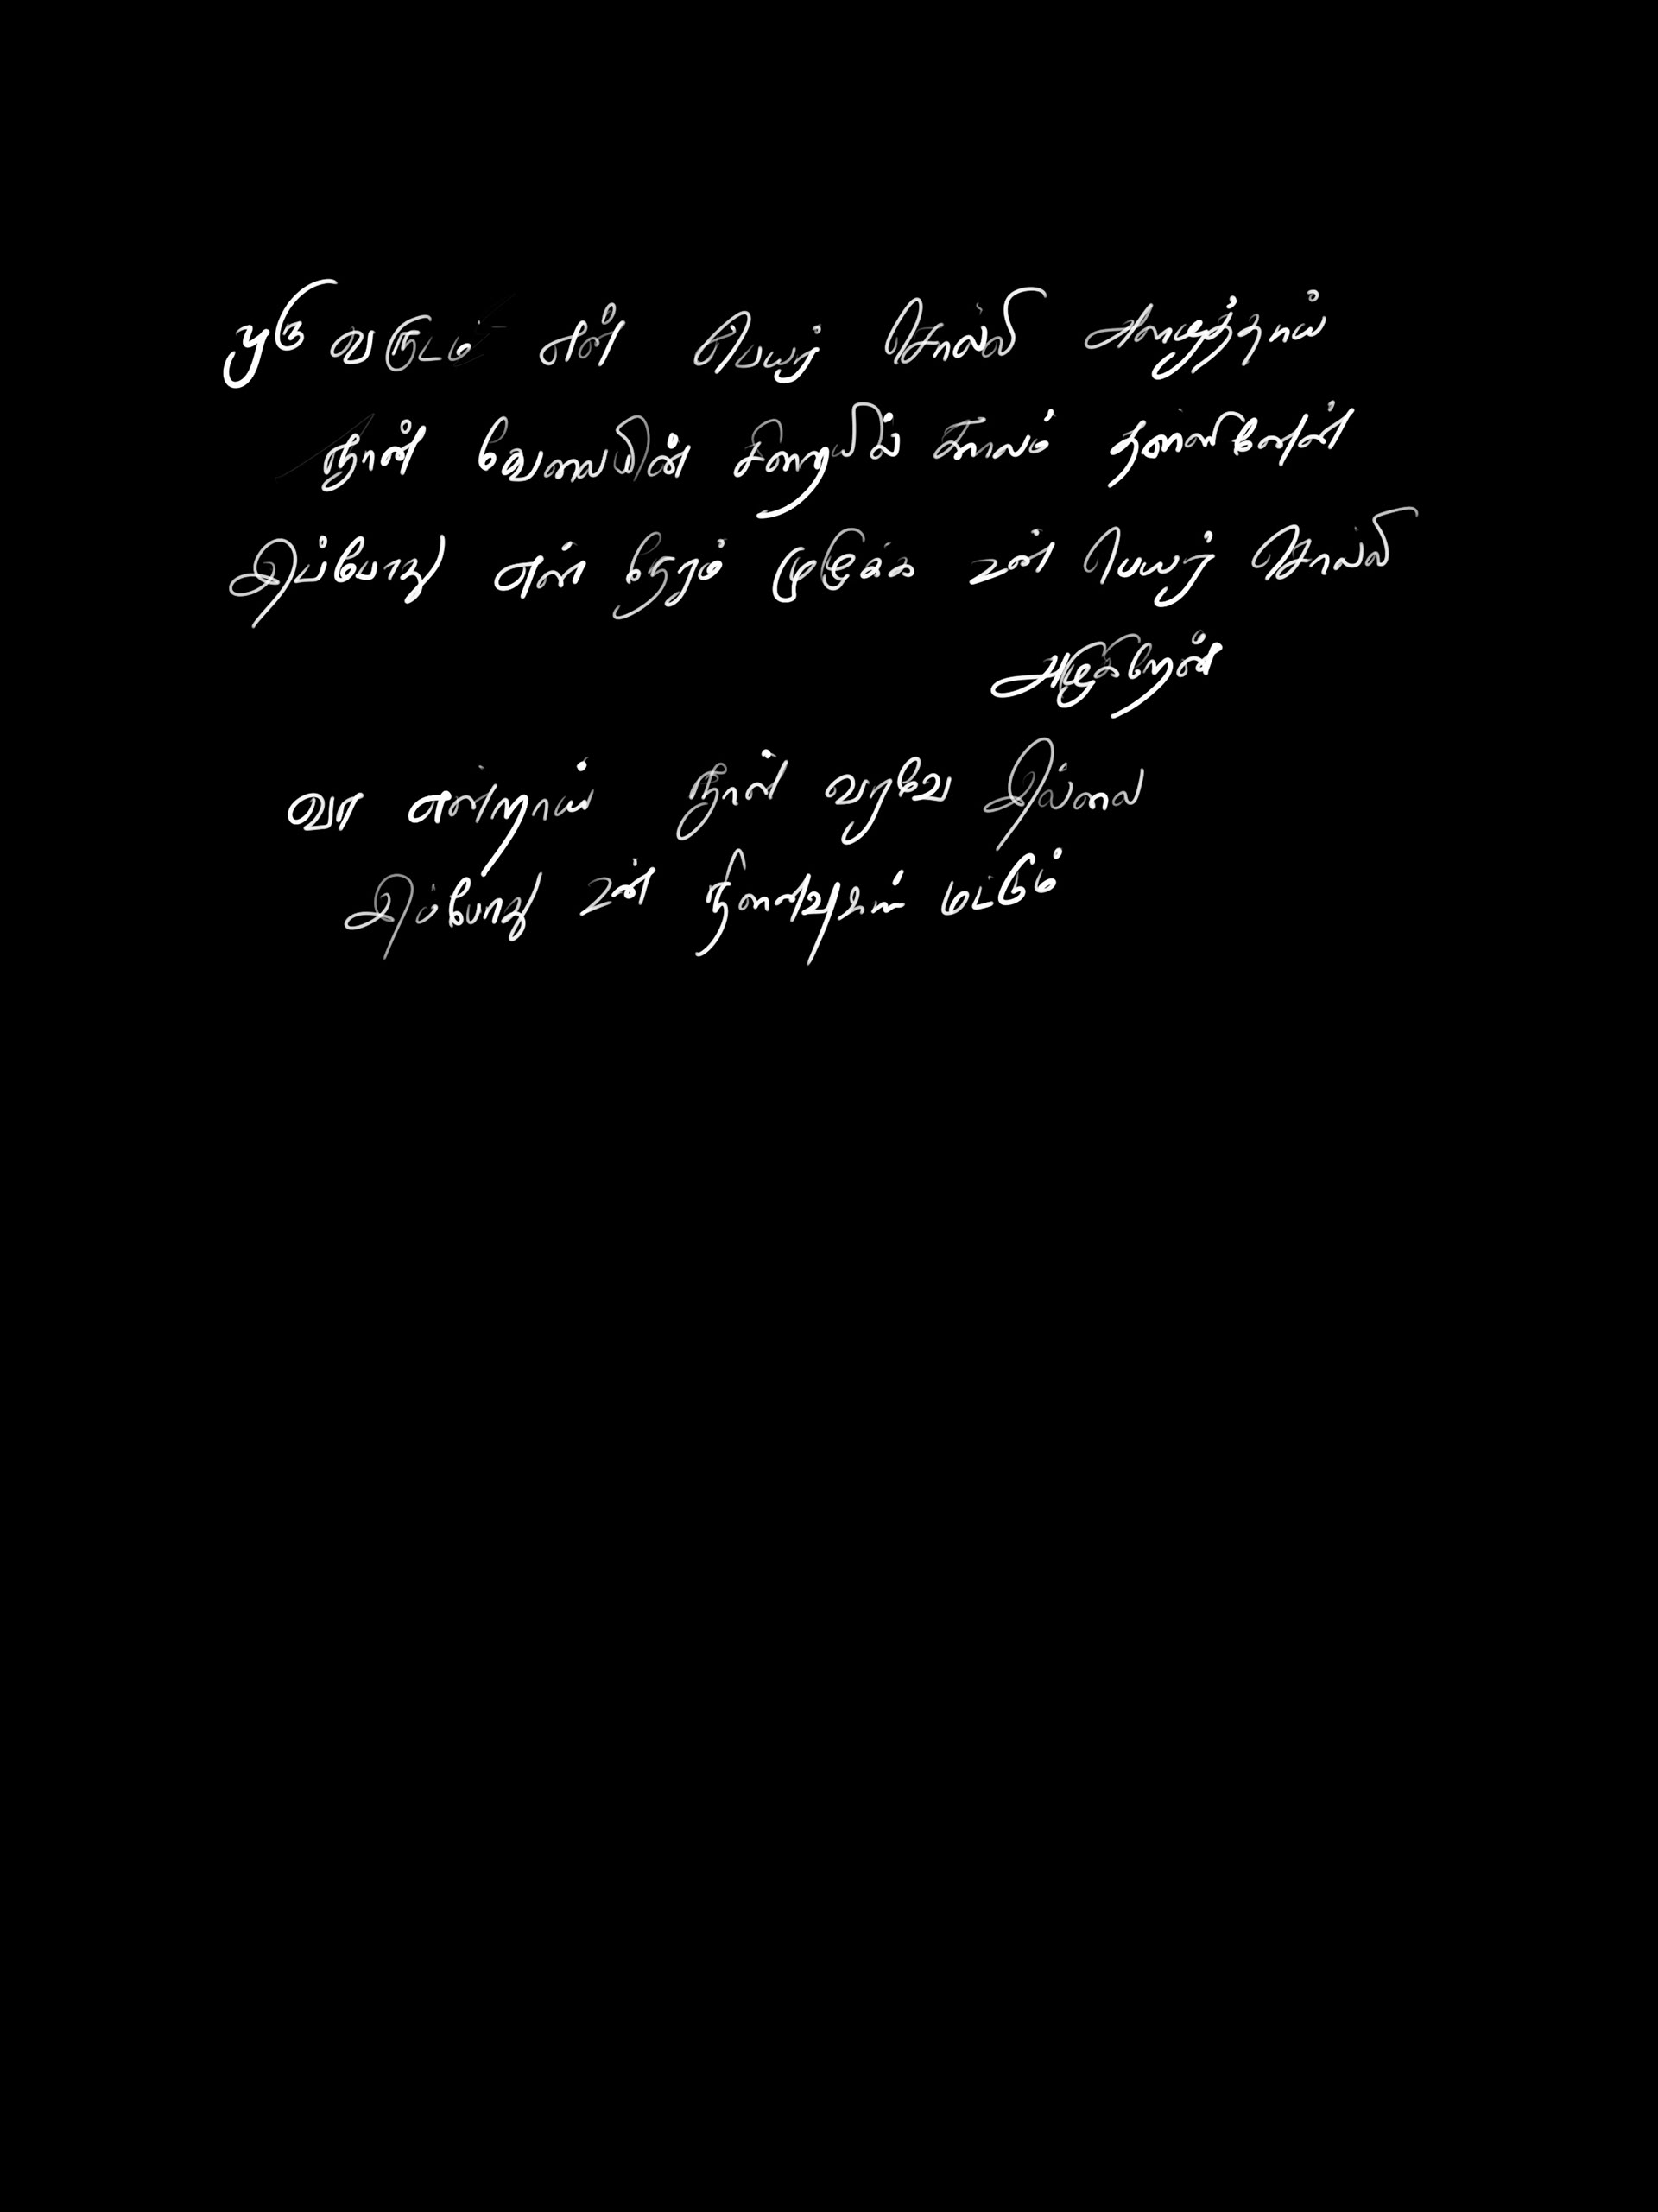 ஒரு வருடம் என் பெயர் சொல்லி அழைத்தாய்
நான் வேலையின் சிறையில் காலம் தள்ளினேன்
இப்போது என் நேரம் முழுக்க உன் பெயர் சொல்லி
அழுகிறேன்
வா என்றாய் நான் வரவே இல்லை
இப்போது உன் நினைவுகள் மட்டும்